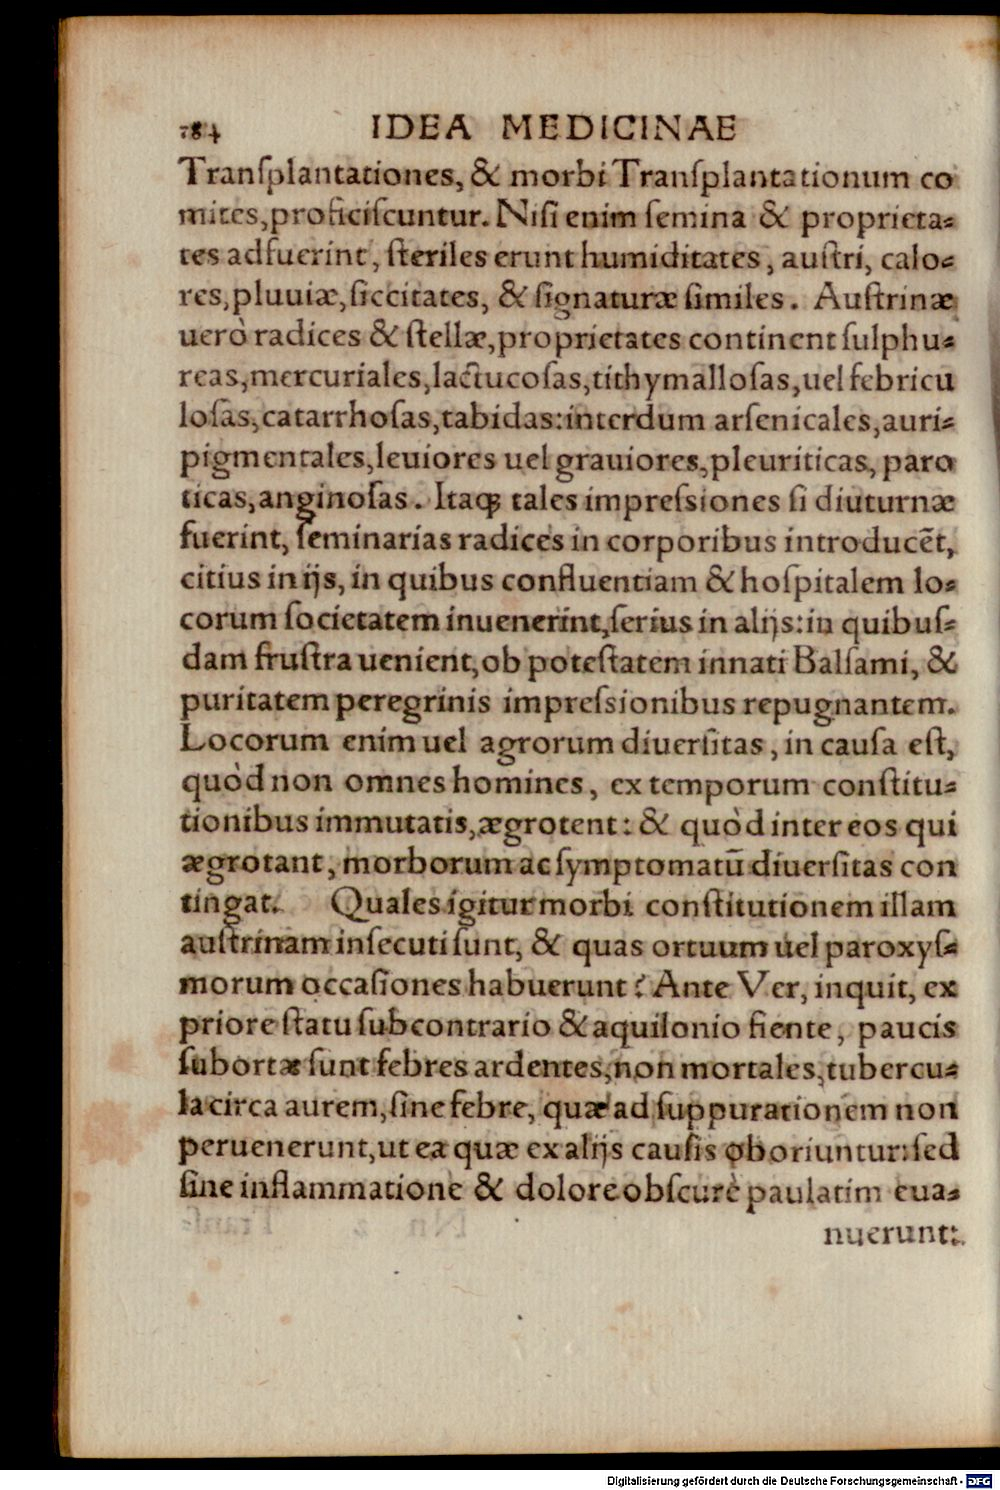 784 IDEA MEDICINAE
Tranſplantationes, & morbi Tranſplantationum co
mites, proficiſcuntur. Niſi enim ſemina & proprieta-
tes adfuerint, ſteriles erunt humiditates, auſtri, calo-
res, pluuiæ, ſiccitates, & ſignaturæ ſimiles. Auſtrinæ
uerò radices & ſtellæ, proprietates continent ſulphu-
reas, mercuriales, lactucoſas, tithymalloſas, uel febricu
loſas, catarrhoſas, tabidas: interdum arſenicales, auri-
pigmentales, leuiores uel grauiores, pleuriticas, paro
ticas, anginoſas. Itaq; tales impreſsiones ſi diuturnæ
fuerint, ſeminarias radices in corporibus introducẽt,
citius in ijs, in quibus confluentiam & hoſpitalem lo-
corum ſocietatem inuenerint, ſerius in alijs: in quibuſ-
dam fruſtra uenient, ob poteſtatem innati Balſami, &
puritatem peregrinis impreſsionibus repugnantem.
Locorum enim uel agrorum diuerſitas, in cauſa eſt,
quòd non omnes homines, ex temporum conſtitu-
tionibus immutatis, ægrotent: & quòd inter eos qui
ægrotant, morborum ac ſymptomatũ diuerſitas con
tingat. Quales igitur morbi conſtitutionem illam
auſtrinam inſecuti ſunt, & quas ortuum uel paroxyſ-
morum occaſiones habuerunt? Ante Ver, inquit, ex
priore ſtatu ſubcontrario & aquilonio fiente, paucis
ſubortæ ſunt febres ardentes, non mortales, tubercu-
la circa aurem, ſine febre, quæ ad ſuppurationem non
peruenerunt, ut ea quæ ex alijs cauſis oboriuntur: ſed
ſine inflammatione & dolore obſcurè paulatim eua-
nuerunt:
Digitalisierung gefördert durch die Deutsche Forschungsgemeinschaft - DFG